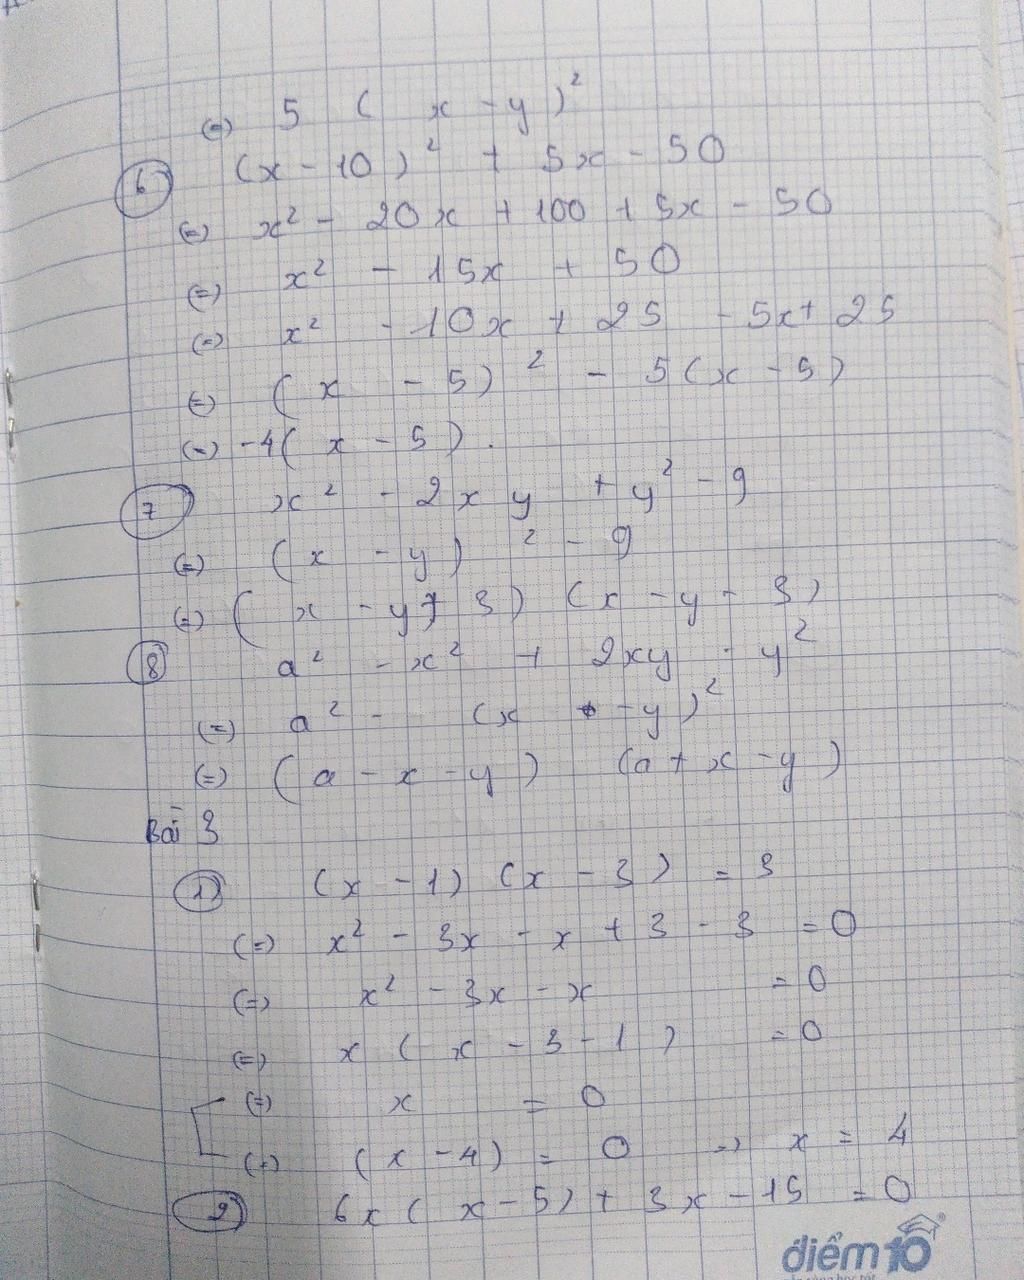 (=) 5 ( x - y )²
6 (x - 10)² + 5x - 50
(=) x² - 20x + 100 + 5x - 50
(=) x² - 15x + 50
(=) x² - 10x + 25 - 5x + 25
(=) ( x - 5)² - 5(x - 5)
(=) -4( x - 5) .
7 x² - 2xy + y² - 9
(=) (x - y)² - 9
(=) ( x - y + 3) (x - y - 3)
8 a² - x² + 2xy - y²
(=) a² - (x - y)²
(=) (a - x - y) (a + x - y)
Bài 3
1) (x - 1) (x - 3) = 3
(=) x² - 3x - x + 3 - 3 = 0
(=) x² - 3x - x = 0
(=) x ( x - 3 - 1 ) = 0
(=) x = 0
(=) (x - 4) = 0 => x = 4
2) 6x ( x - 5) + 3x - 15 = 0
điểm10